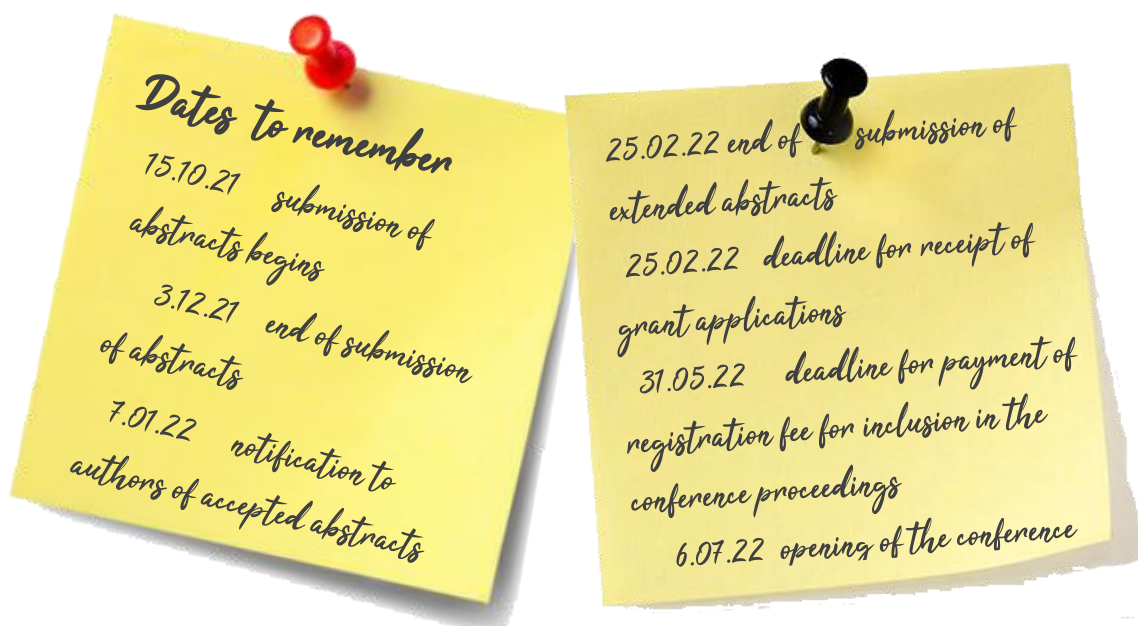 Dates to remember
15.10.21 submission of
abstracts begins
3.12.21 end of submission
of abstracts
7.01.22 notification to
authors of accepted abstracts
25.02.22 end of submission of
extended abstracts
25.02.22 deadline for receipt of
grant applications
31.05.22 deadline for payment of
registration fee for inclusion in the
conference proceedings
6.07.22 opening of the conference